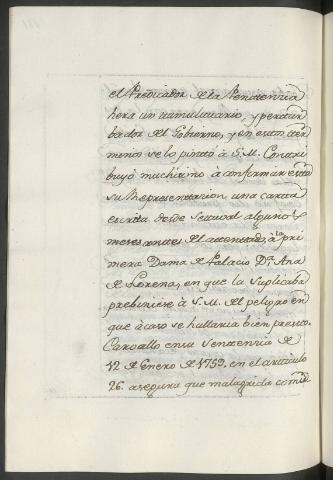 el Predicador de la Penitencia
hera un tumultuario, y pertur
bador del Gobierno, y en estos ter
minos se lo pintó à S. M. Contri
buyó muchisimo à confirmar esta
su Representacion una carta
escrita desde Setuval algunos
meses antes del atentado, à la pri
mera Dama de Palacio D.ª Ana
de Lorena, en que la suplicaba
prebiniese à S. M. del peligro en
que àcaso se hallaria bien presto.
Carvallo en su Sentencia de
12 de Enero de 1759. en el articulo
26. asegura que malagrida comu